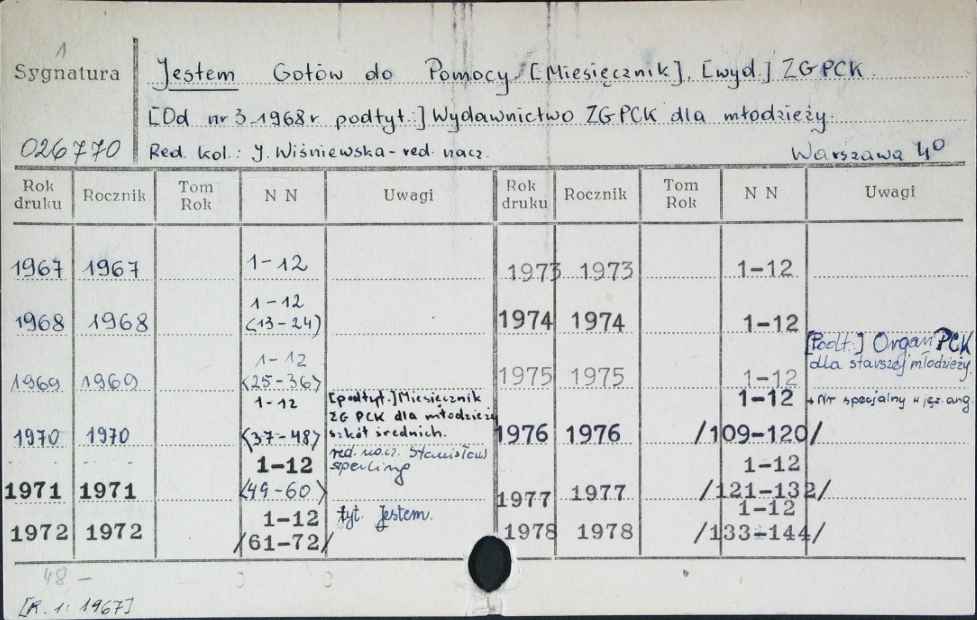 1
Sygnatura
Jestem Gotów do Pomocy. [Miesięcznik]. [wyd.] ZG PCK
[Od nr 3 1968 r podtyt.:] Wydawnictwo ZG PCK dla młodzieży.
026770
Red. kol.: J. Wiśniewska - red. nacz. Warszawa 40
Rok druku Rocznik Tom Rok N N Uwagi Rok druku Rocznik Tom Rok N N Uwagi
1967 1967 1-12
1968 1968 1-12 (13-24)
1969 1969 1-12 <25-36>
1970 1970 1-12 <37-48> [podtyt.] Miesięcznik
ZG PCK dla młodzieży
szkół średnich.
red. nacz. Stanisław
Sperling
1971 1971 1-12 <49-60>
1972 1972 1-12 /61-72/ tyt. Jestem.
1973 1973 1-12
1974 1974 1-12
[Podt.] Organ PCK
dla starszej młodzieży.
1975 1975 1-12
1976 1976 1-12 /109-120/ + Nr specjalny w jęz. ang.
1977 1977 1-12 /121-132/
1978 1978 1-12 /133-144/
48 -
[R. 1: 1967]